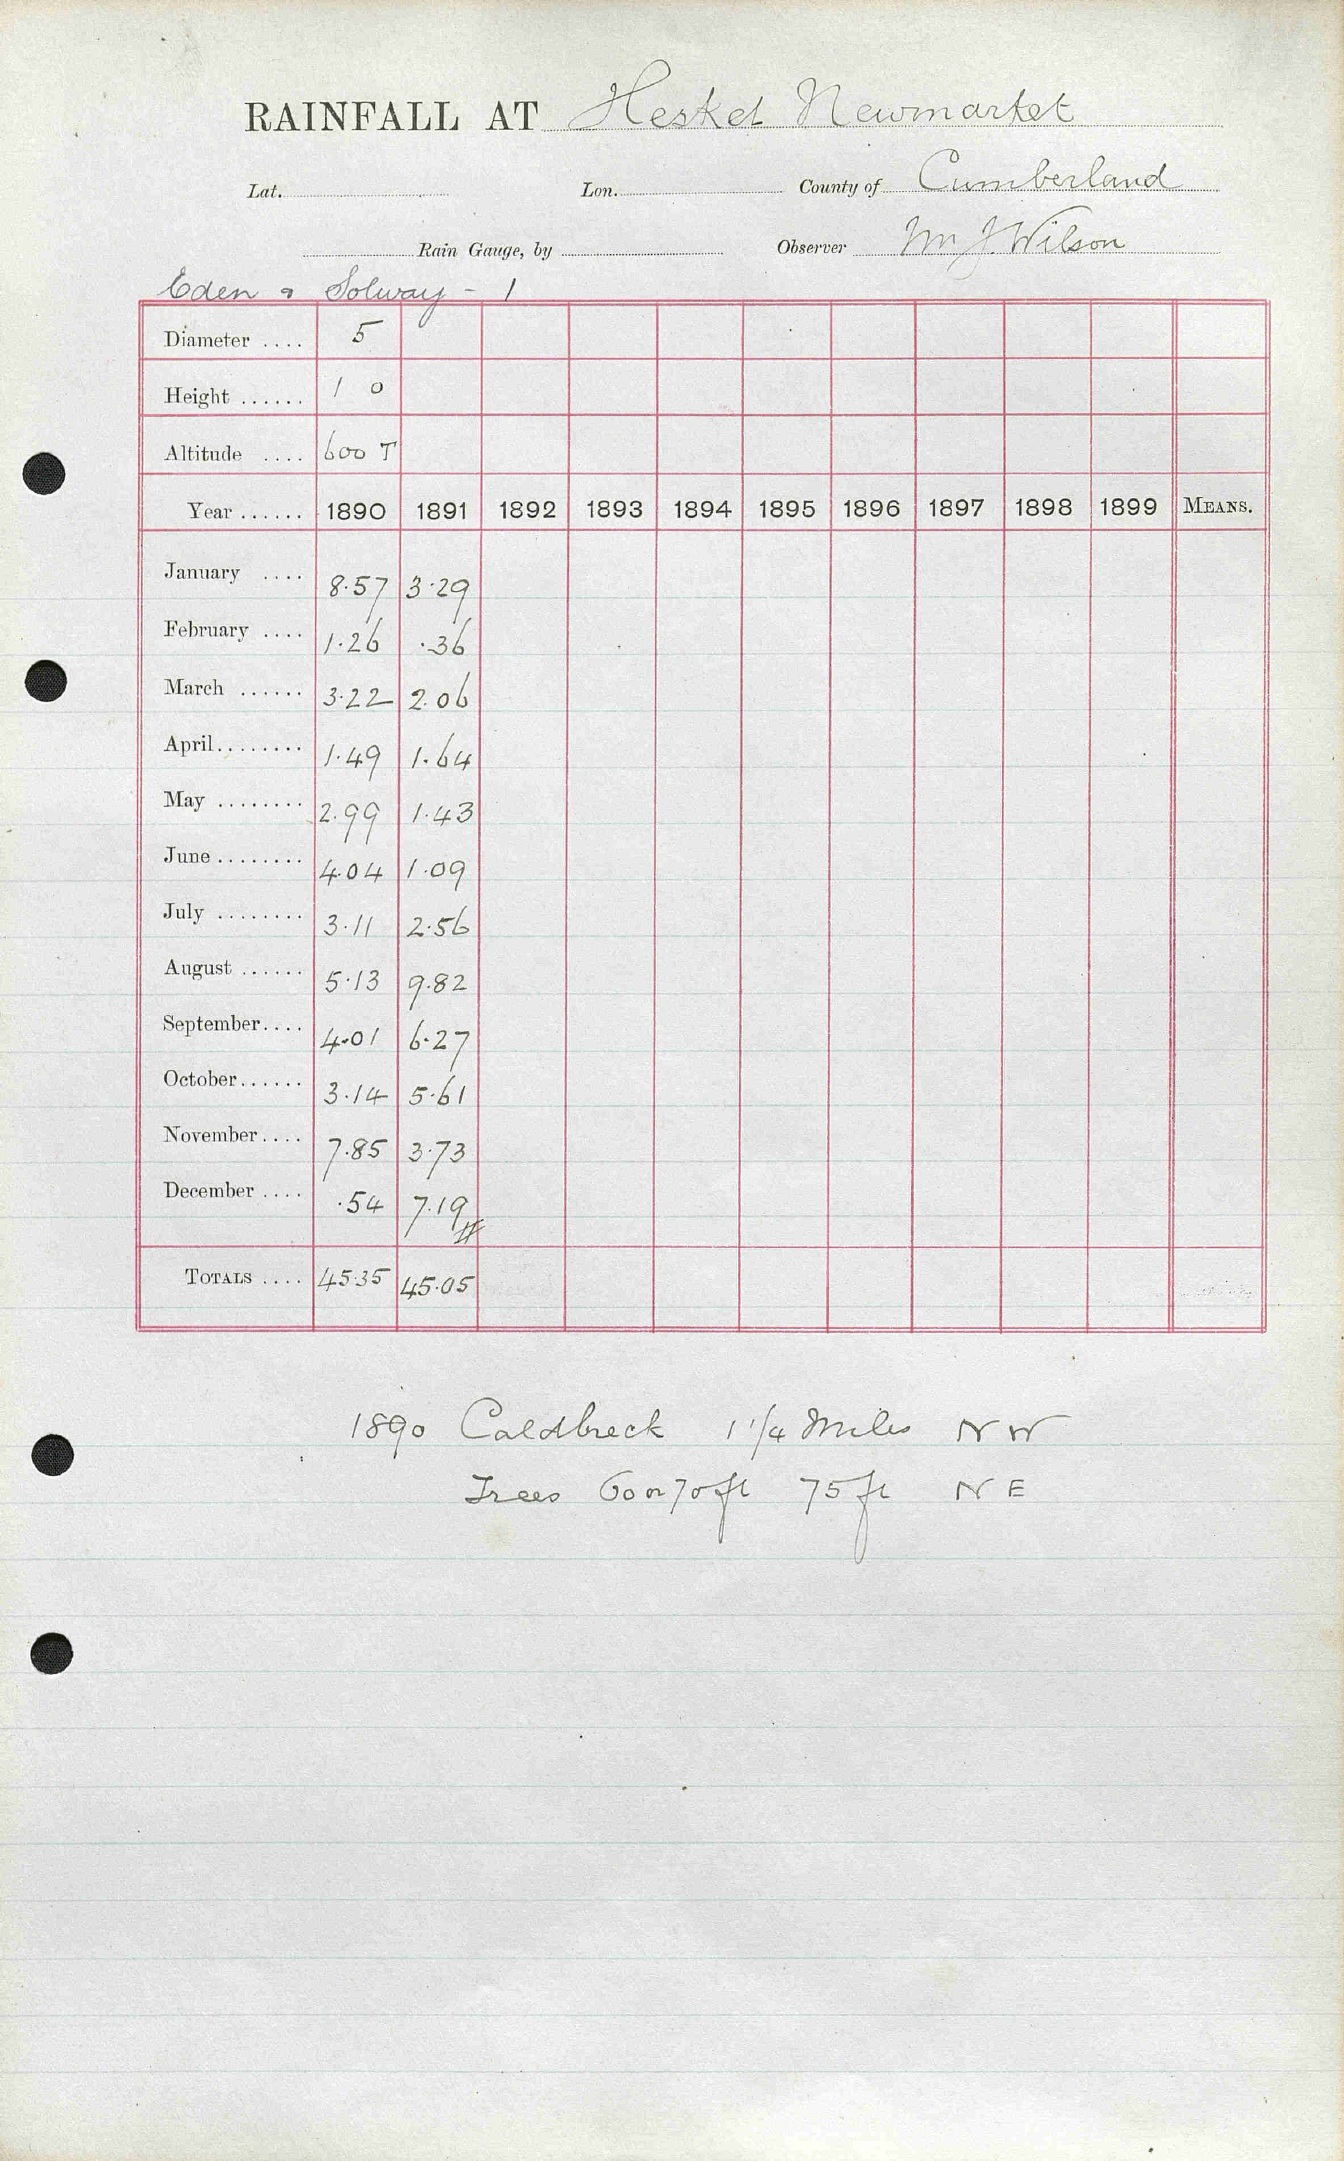 RAINFALL AT Hesket Newmarket
Lat. Lon. County of Cumberland
Rain Gauge, by Observer Wm J. Wilson
Eden & Solway - 1
Diameter .... 5
Height ...... 1 0
Altitude .... 600 T
Year ...... 1890 1891 1892 1893 1894 1895 1896 1897 1898 1899 MEANS.
January .... 8.57 3.29
February .... 1.26 .36
March ...... 3.22 2.06
April........ 1.49 1.64
May ........ 2.99 1.43
June ........ 4.04 1.09
July ........ 3.11 2.56
August ...... 5.13 9.82
September.... 4.01 6.27
October...... 3.14 5.61
November.... 7.85 3.73
December .... .54 7.19
TOTALS .... 45.35 45.05
1890 Caldbeck 1 1/4 Miles NW
Trees 60 or 70 ft 75 ft NE